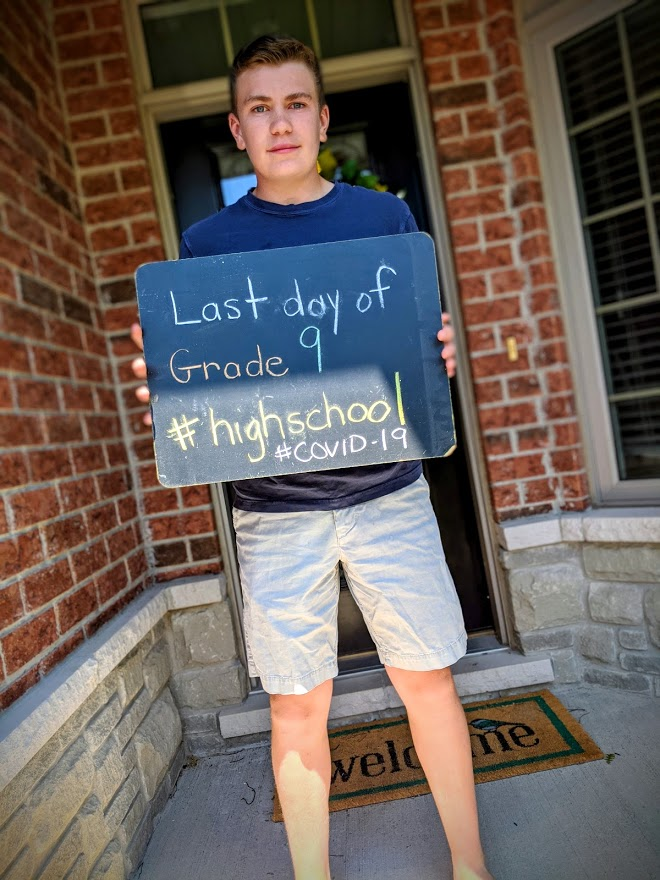 Last day of
Grade 9
#highschool
#COVID-19
welcome